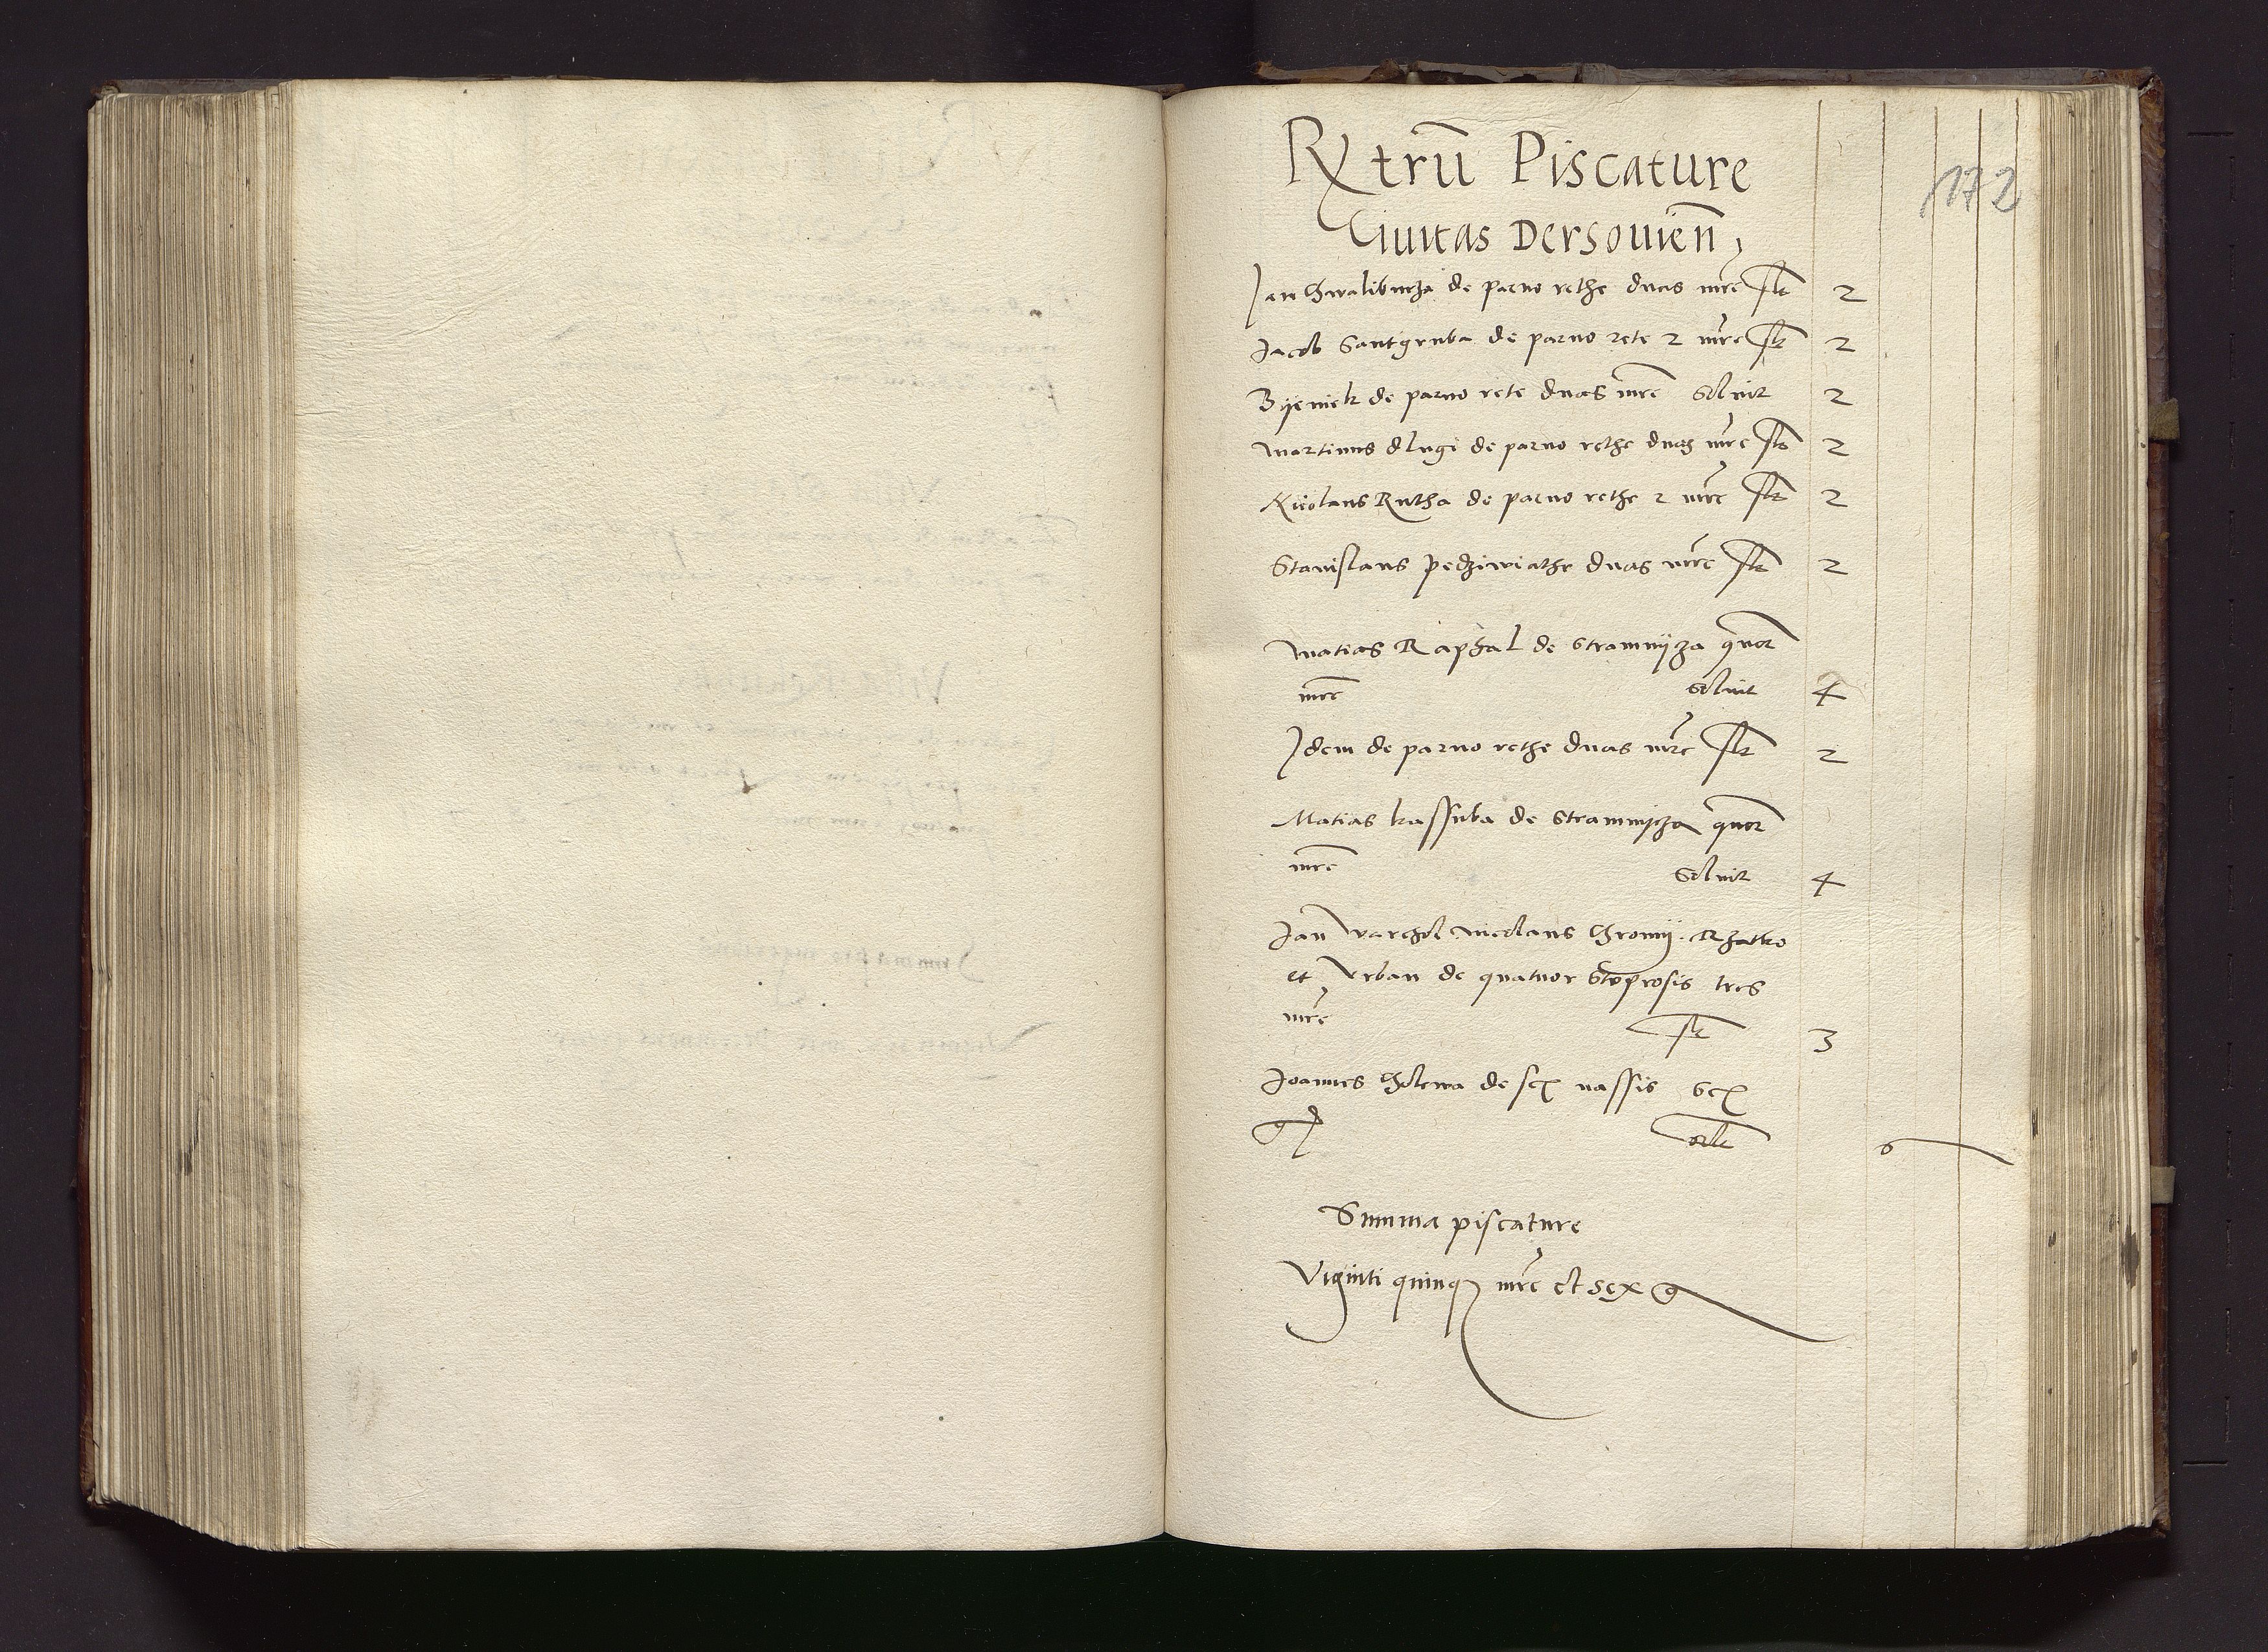 172
Rxtrū Piscature
Ciuitas Dersouien
Jan Chwaliburza de paruo rethe duas mrc slt 2
Jacob Santgruba de paruo rete 2 mrc slt 2
Byeniek de paruo rete duas mrc Soluit 2
Martinus dlugi de paruo rethe duas mrc slt 2
Nicolaus Rutha de paruo rethe 2 mrc slt 2
Stanislaus pedziwiathr duas mrc slt 2
Matias Raphal de Stramnijza quor
mrc Soluit 4
Idem de paruo rethe duas mrc slt 2
Matias kassuba de Stramnijcza quor
mrc Soluit 4
Jan Warchol Nicolaus Chromy. Rzatko
et Vrban de quatuor Stoprosis tres
mrc slt 3
Joannes Cholewa de sex vassis sex
g 6
Summa piscature
Viginti quinq mrc et sex g